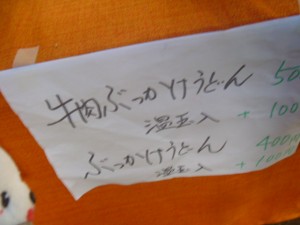 牛肉ぶっかけうどん 50
温玉入 +100
ぶっかけうどん 400円
温玉入 +100円